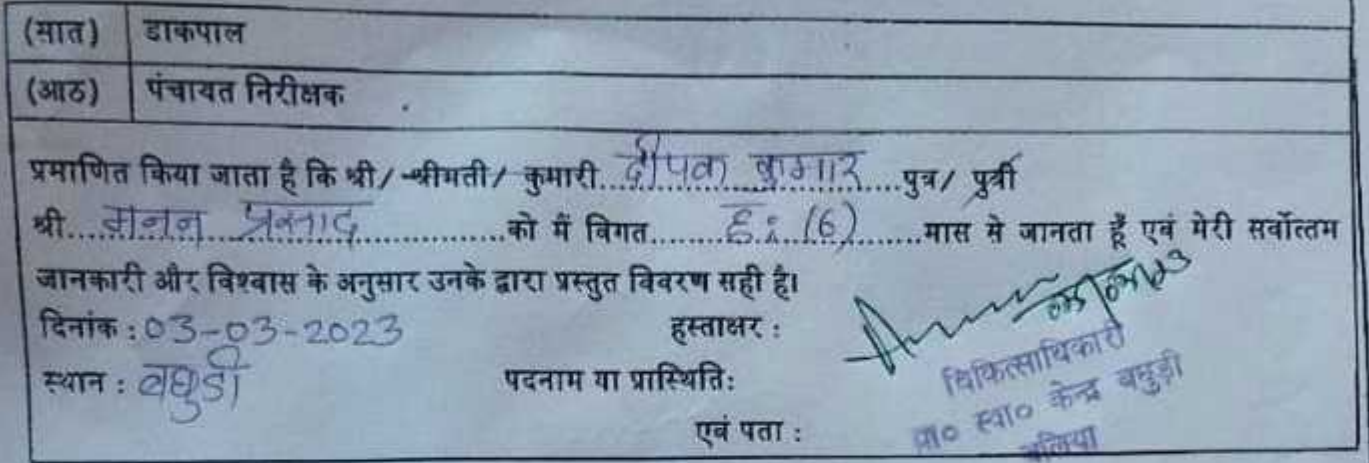 (सात) डाकपाल
(आठ) पंचायत निरीक्षक
प्रमाणित किया जाता है कि श्री/ श्रीमती/ कुमारी...दीपक कुमार...पुत्र/ पुत्री
श्री...मनन प्रसाद...को मैं विगत...छः (6)...मास से जानता हूँ एवं मेरी सर्वोत्तम
जानकारी और विश्वास के अनुसार उनके द्वारा प्रस्तुत विवरण सही है।
दिनांक : 03-03-2023 हस्ताक्षर :
स्थान : बघुडी पदनाम या प्रास्थिति:
चिकित्साधिकारी
प्रा० स्वा० केन्द्र बघुड़ी
एवं पता :
बलिया